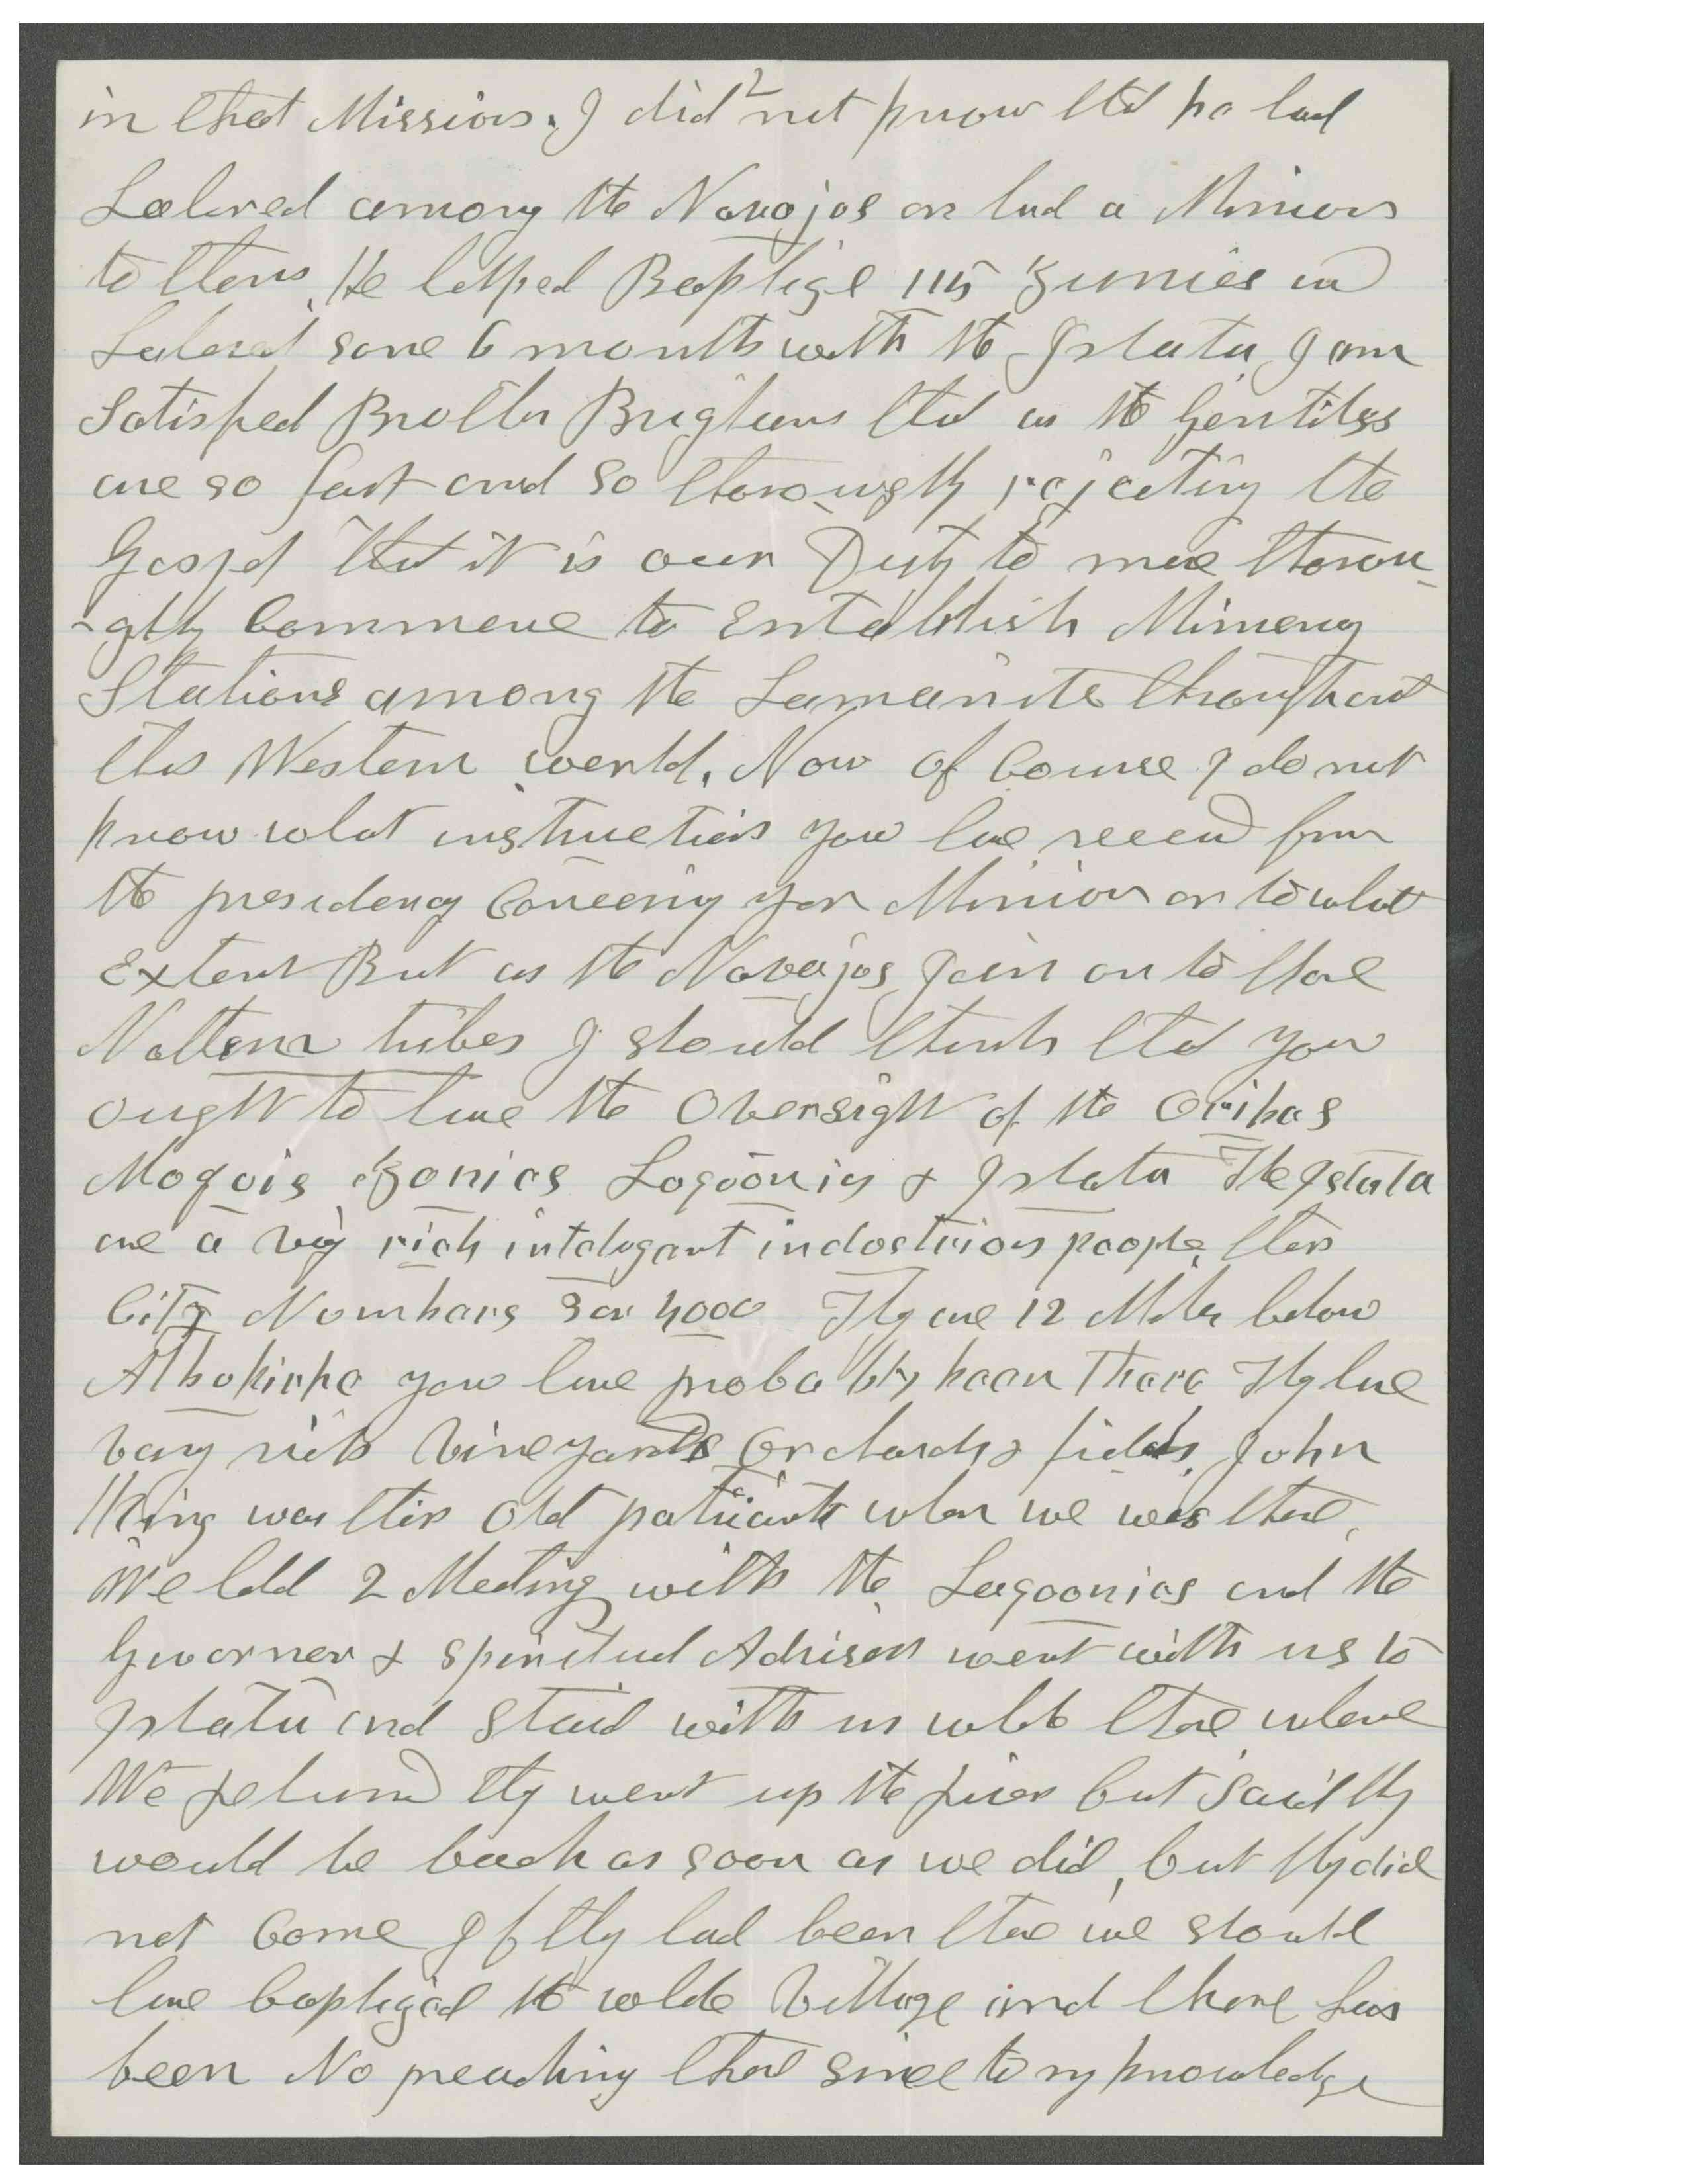 2
in that Mission. I did not know that he had
Labored among the Navajos or had a Mission
to them. He helped Baptize 115 Zunies and
Labored some 6 months with the Islata, I am
Satisfied Brother Brigham that as the Gentiles
are so fast and so thoroughly rejecting the
Gospel that it is our Duty to more thorou-
-ghly Commence to Establish Missionary
Stations among the Lamanites throughout
this Western world. Now of Course I do not
know what instructions you have received from
the presidency Concerning your Mission or to what
Extent But as the Navajos Join on to those
Nothern tribes I should think that you
ought to have the Oversight of the Oribas
Moquis Zonies Lagoonies & Islata The Islata
are a very rich inteligent industrious people, their
City Numbers 3 or 4000 They are 12 Miles below
Albokirke you have probably been There They have
very rich Vineyards Orchards & fields, John
King was their Old patriarch when we was there,
We held 2 Meeting with the Lagoonies and the
Guvorner & Spiritual Adviser went with us to
Islata and Staid with us while there whene
We returned they went up the river but Said they
would be back as soon as we did, but they did
not Come If they had been there we should
have baptized the whole Village and there has
been No preaching there since to my knowledge